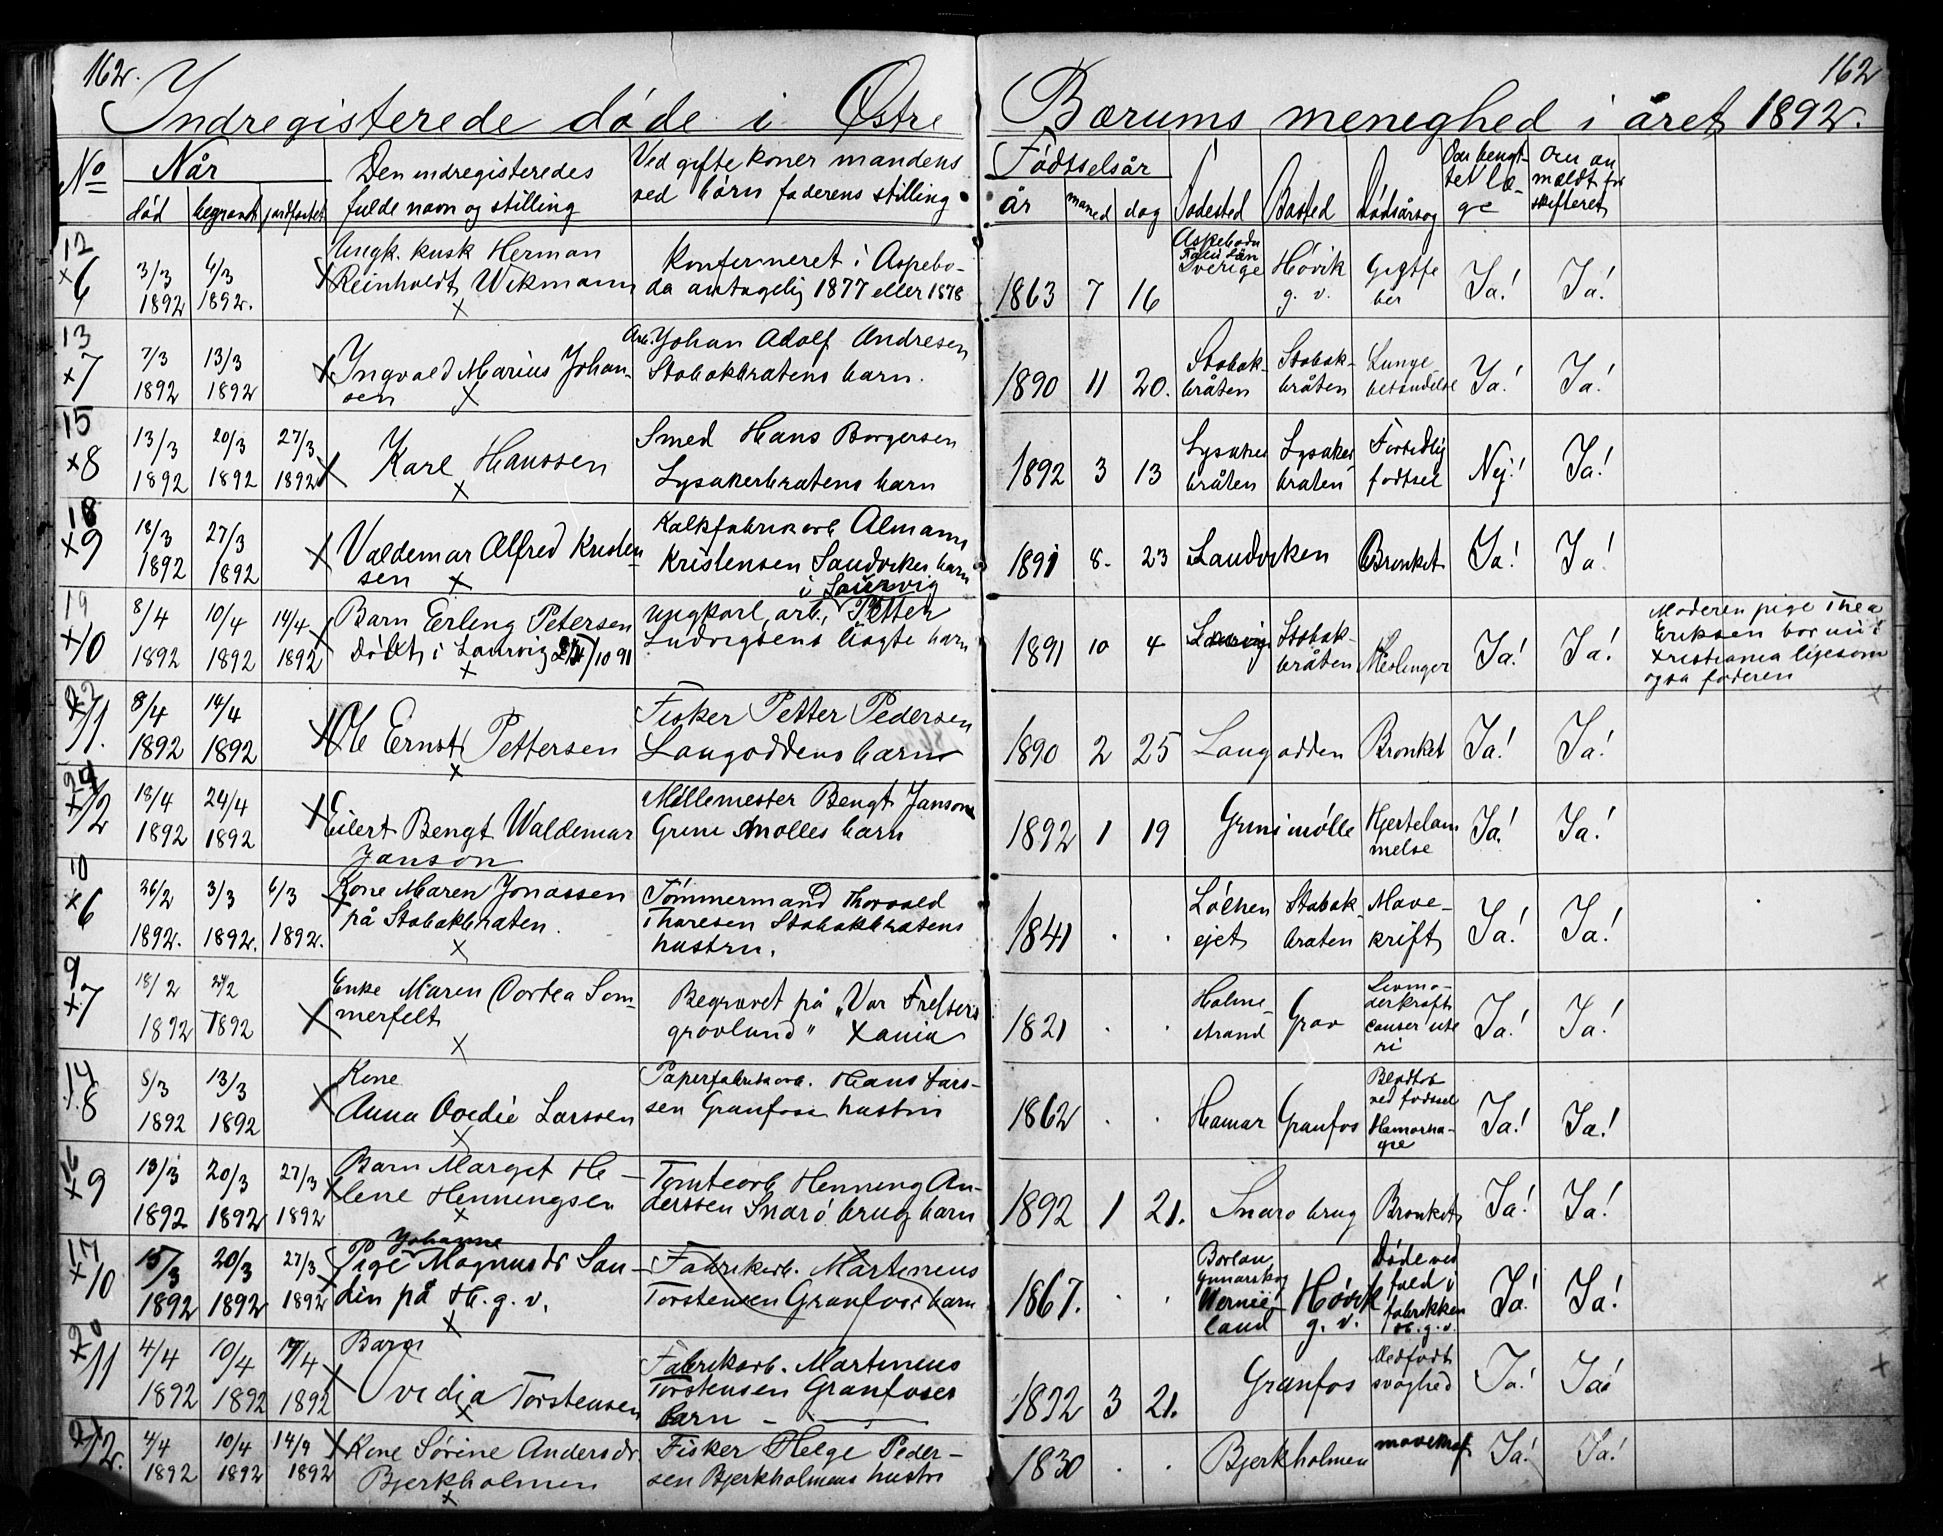 162.
162
Indregisterede døde i Østre Bærums meneghed i året 1892.
No Når Den indregisteredes fulde navn og stilling Ved gifte koner mandens ved børn faderens stilling Fødtselsår Fødested Bosted Dødsårsag Om benyttet læge Om anmeldt for skifteret
død begravet jordfæstet år måned dag
12 x6 3/3 1892 6/3 1892. Ungk. kusk Herman
Reinholdt Wikmann Konfirmeret i Aspeboda antagelig 1877 eller 1878 1863 7 16 Aspeboda Falu Län Sverige Høvik g. v. Gigtfeber Ja! Ja!
13 x7 7/3 1892 13/3 1892 Ingvald Marius Johansen Arb. Johan Adolf Andresen
Stabækbråtens barn. 1890 11 20. Stabækbråten Stabækbråten Lungebetændelse Ja! Ja!
15 x8 13/3 1892 20/3 1892 27/3 1892 Karl Hanssen Smed Hans Borgersen
Lysakerbråtens barn 1892 3 13 Lysakerbråten Lysakerbråten Fortidlig fødtsel Nej! Ja!
18 x9 18/3 1892 27/3 1892 Valdemar Alfred Kristensen Kalkfabrikarb
Kristensen Sandviken barn 1891 8. 23 Sandviken Bronket Ja! Ja!
19 x10 8/4 1892 10/4 1892 14/4 1892 Barn Erling Petersen
Døbt i Laurvig /10 91 i Laurvig
Ungkarl, arb., Petter
Ludvigsens uægte barn 1891 10 4 Laurvig Stabækbråten Ja! Ja! Moderen pige Thea
Eriksen bor nu i
Kristiania ligesom
også faderen
22 x11. 8/4 1892 14/4 1892 Ole Ernst Pettersen Fisker Petter Pedersen
Langoddens barn 1890 2 25 Langodden Bronket Ja! Ja!
24 x12 18/4 1892 24/4 1892 Eilert Bengt Waldemar
Janson Møllemester Bengt Janson
Grini Mølles barn 1892 1 19 Grini mølle Hjertelammelse Ja! Ja!
10 x6 26/2 1892. 3/3 1892. 6/3 1892. Kone Maren Jonassen
på Stabækbråten. Tømmermand Thorvald
Thoresen Stabækbråtens
hustru. 1841 . . Løkenejet Stabækbråten Mavekræft Ja! Ja!
9 x7 18/2 1892 24/2 1892 Enke Maren Dortea Sommerfelt Begravet på "Vor Frelsers
gravlund" Xania 1821 . . Holmestrand Grav Livmoderkræft cancer uteri Ja! Ja!
14 8 5/3 1892 13/3 1892 Kone
Anna Ovedie Larssen Papirfabrikarb. Hans Larssen Granfoss hustru 1862 . . Hamar Granfos ved fødtsel Ja! Ja!
16 x9 13/3 1892 20/3 1892 27/3 1892 Barn Marget Helene Henningsen Tomtearb Henning Anderssen Snarø brug barn 1892 1 21. Snarø brug Bronket Ja! Ja!
17 x10 15/3 1892 20/3 1892 27/3 1892 Johanne
Pige Magnusdr Sandin på H. g. v. Fabrikarb. Martinius
Torstensen Granfoss barn 1867. . . Gunarskog Wermeland Høvik g. v. Døde ved fald i fabrikken H. g. v. Ja! Ja!
20 x11 4/4 1892 10/4 1892 14/4 1892 Barn
Ovidia Torstensen Fabrikarb. Martinius
Torstensen Granfoses
barn 1892 3 21. Granfos Medfødt svaghed Ja! Ja!
21 x12. 4/4 1892 10/4 1892 14/4 1892 Kone Sørine Andersdr.
Bjerkholmen Fisker Helge Pedersen Bjerkholmens hustru 1830 . . Bjerkholmen Ja! Ja!